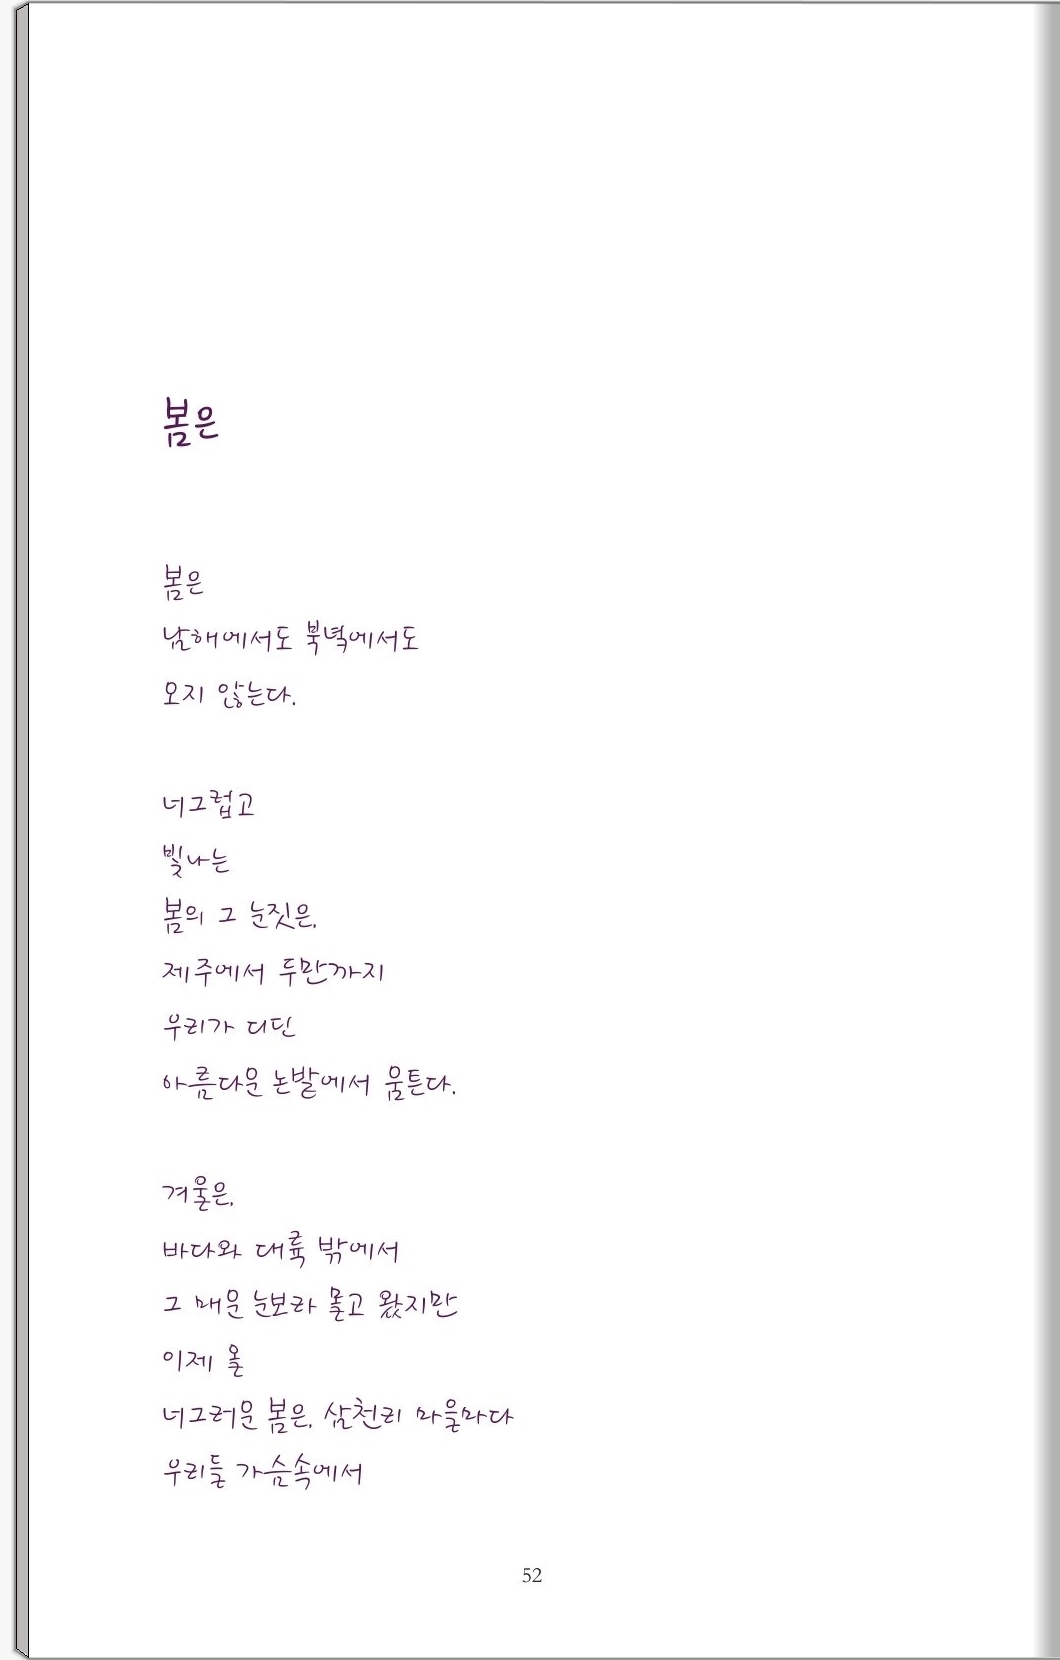 봄은
봄은
남해에서도 북녘에서도
오지 않는다.
너그럽고
빛나는
봄의 그 눈짓은,
제주에서 두만까지
우리가 디딘
아름다운 논밭에서 움튼다.
겨울은,
바다와 대륙 밖에서
그 매운 눈보라 몰고 왔지만
이제 올
너그러운 봄은, 삼천리 마을마다
우리들 가슴속에서
52